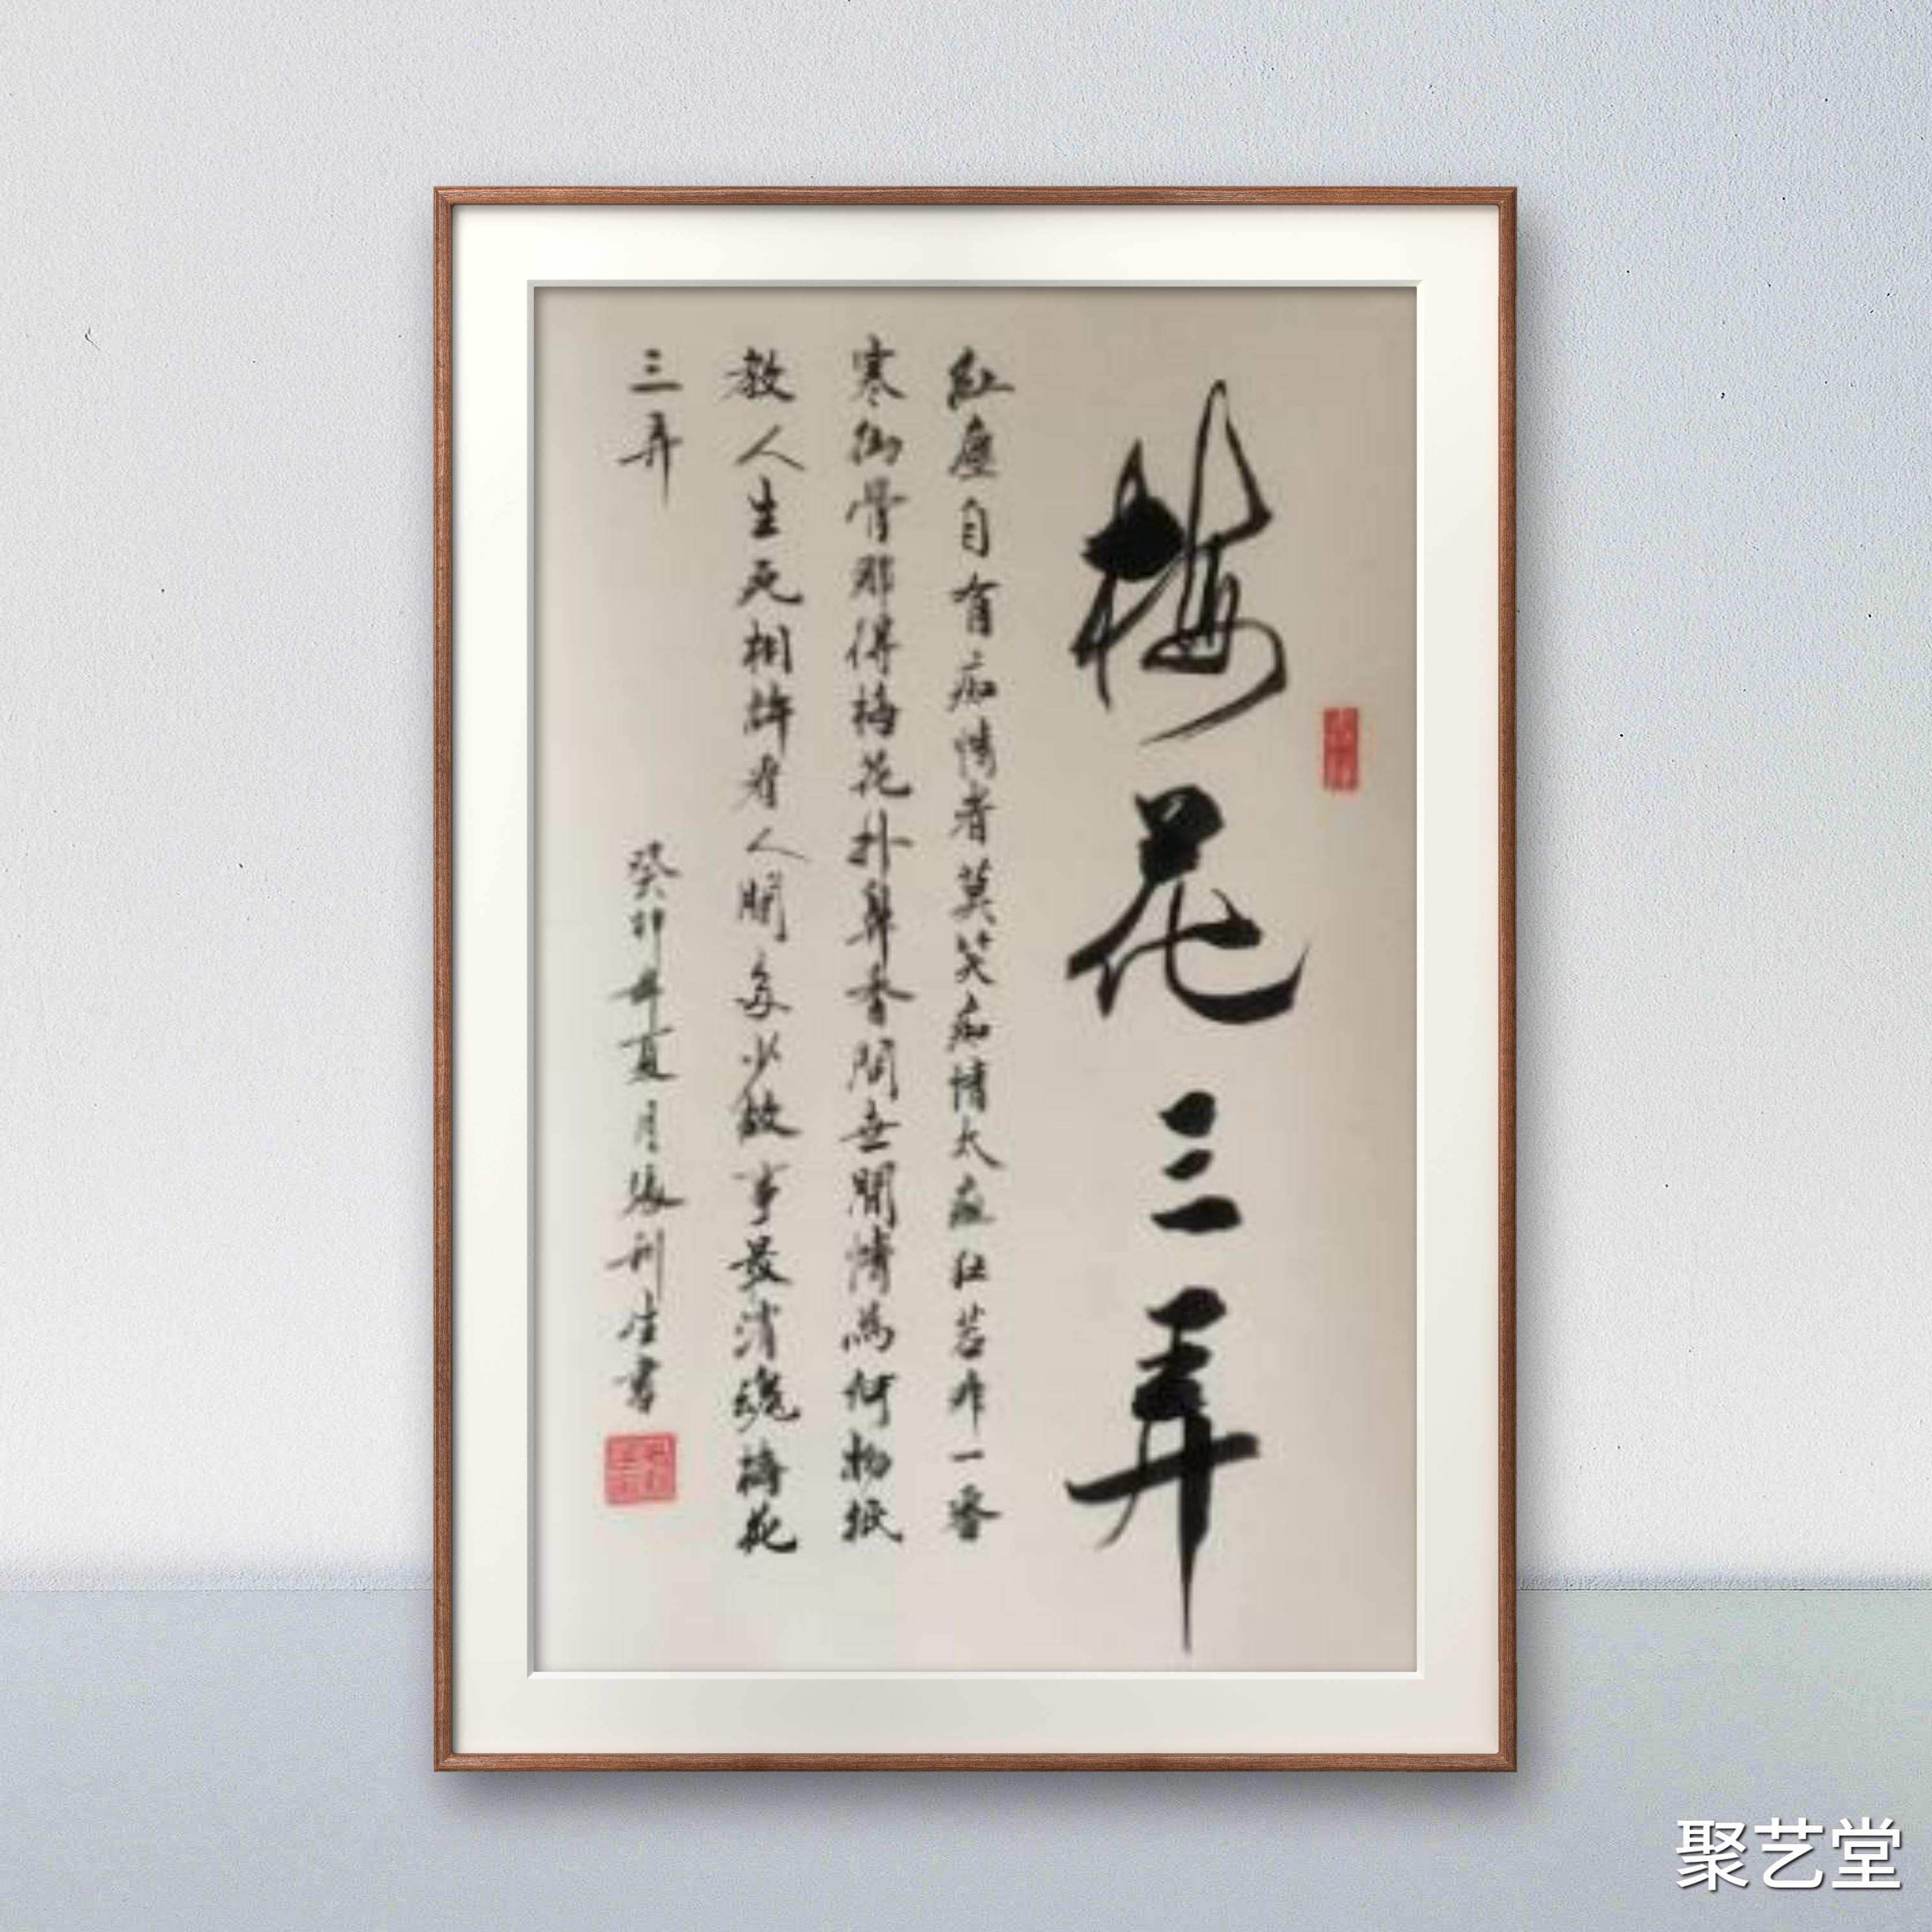 梅花三弄
紅塵自有痴情者莫笑痴情太痴狂若非一番
寒徹骨那得梅花扑鼻香問世間情為何物紙
教人生死相許看人間多少故事最消魂梅花
三弄
癸卯年夏月張利生書
聚艺堂